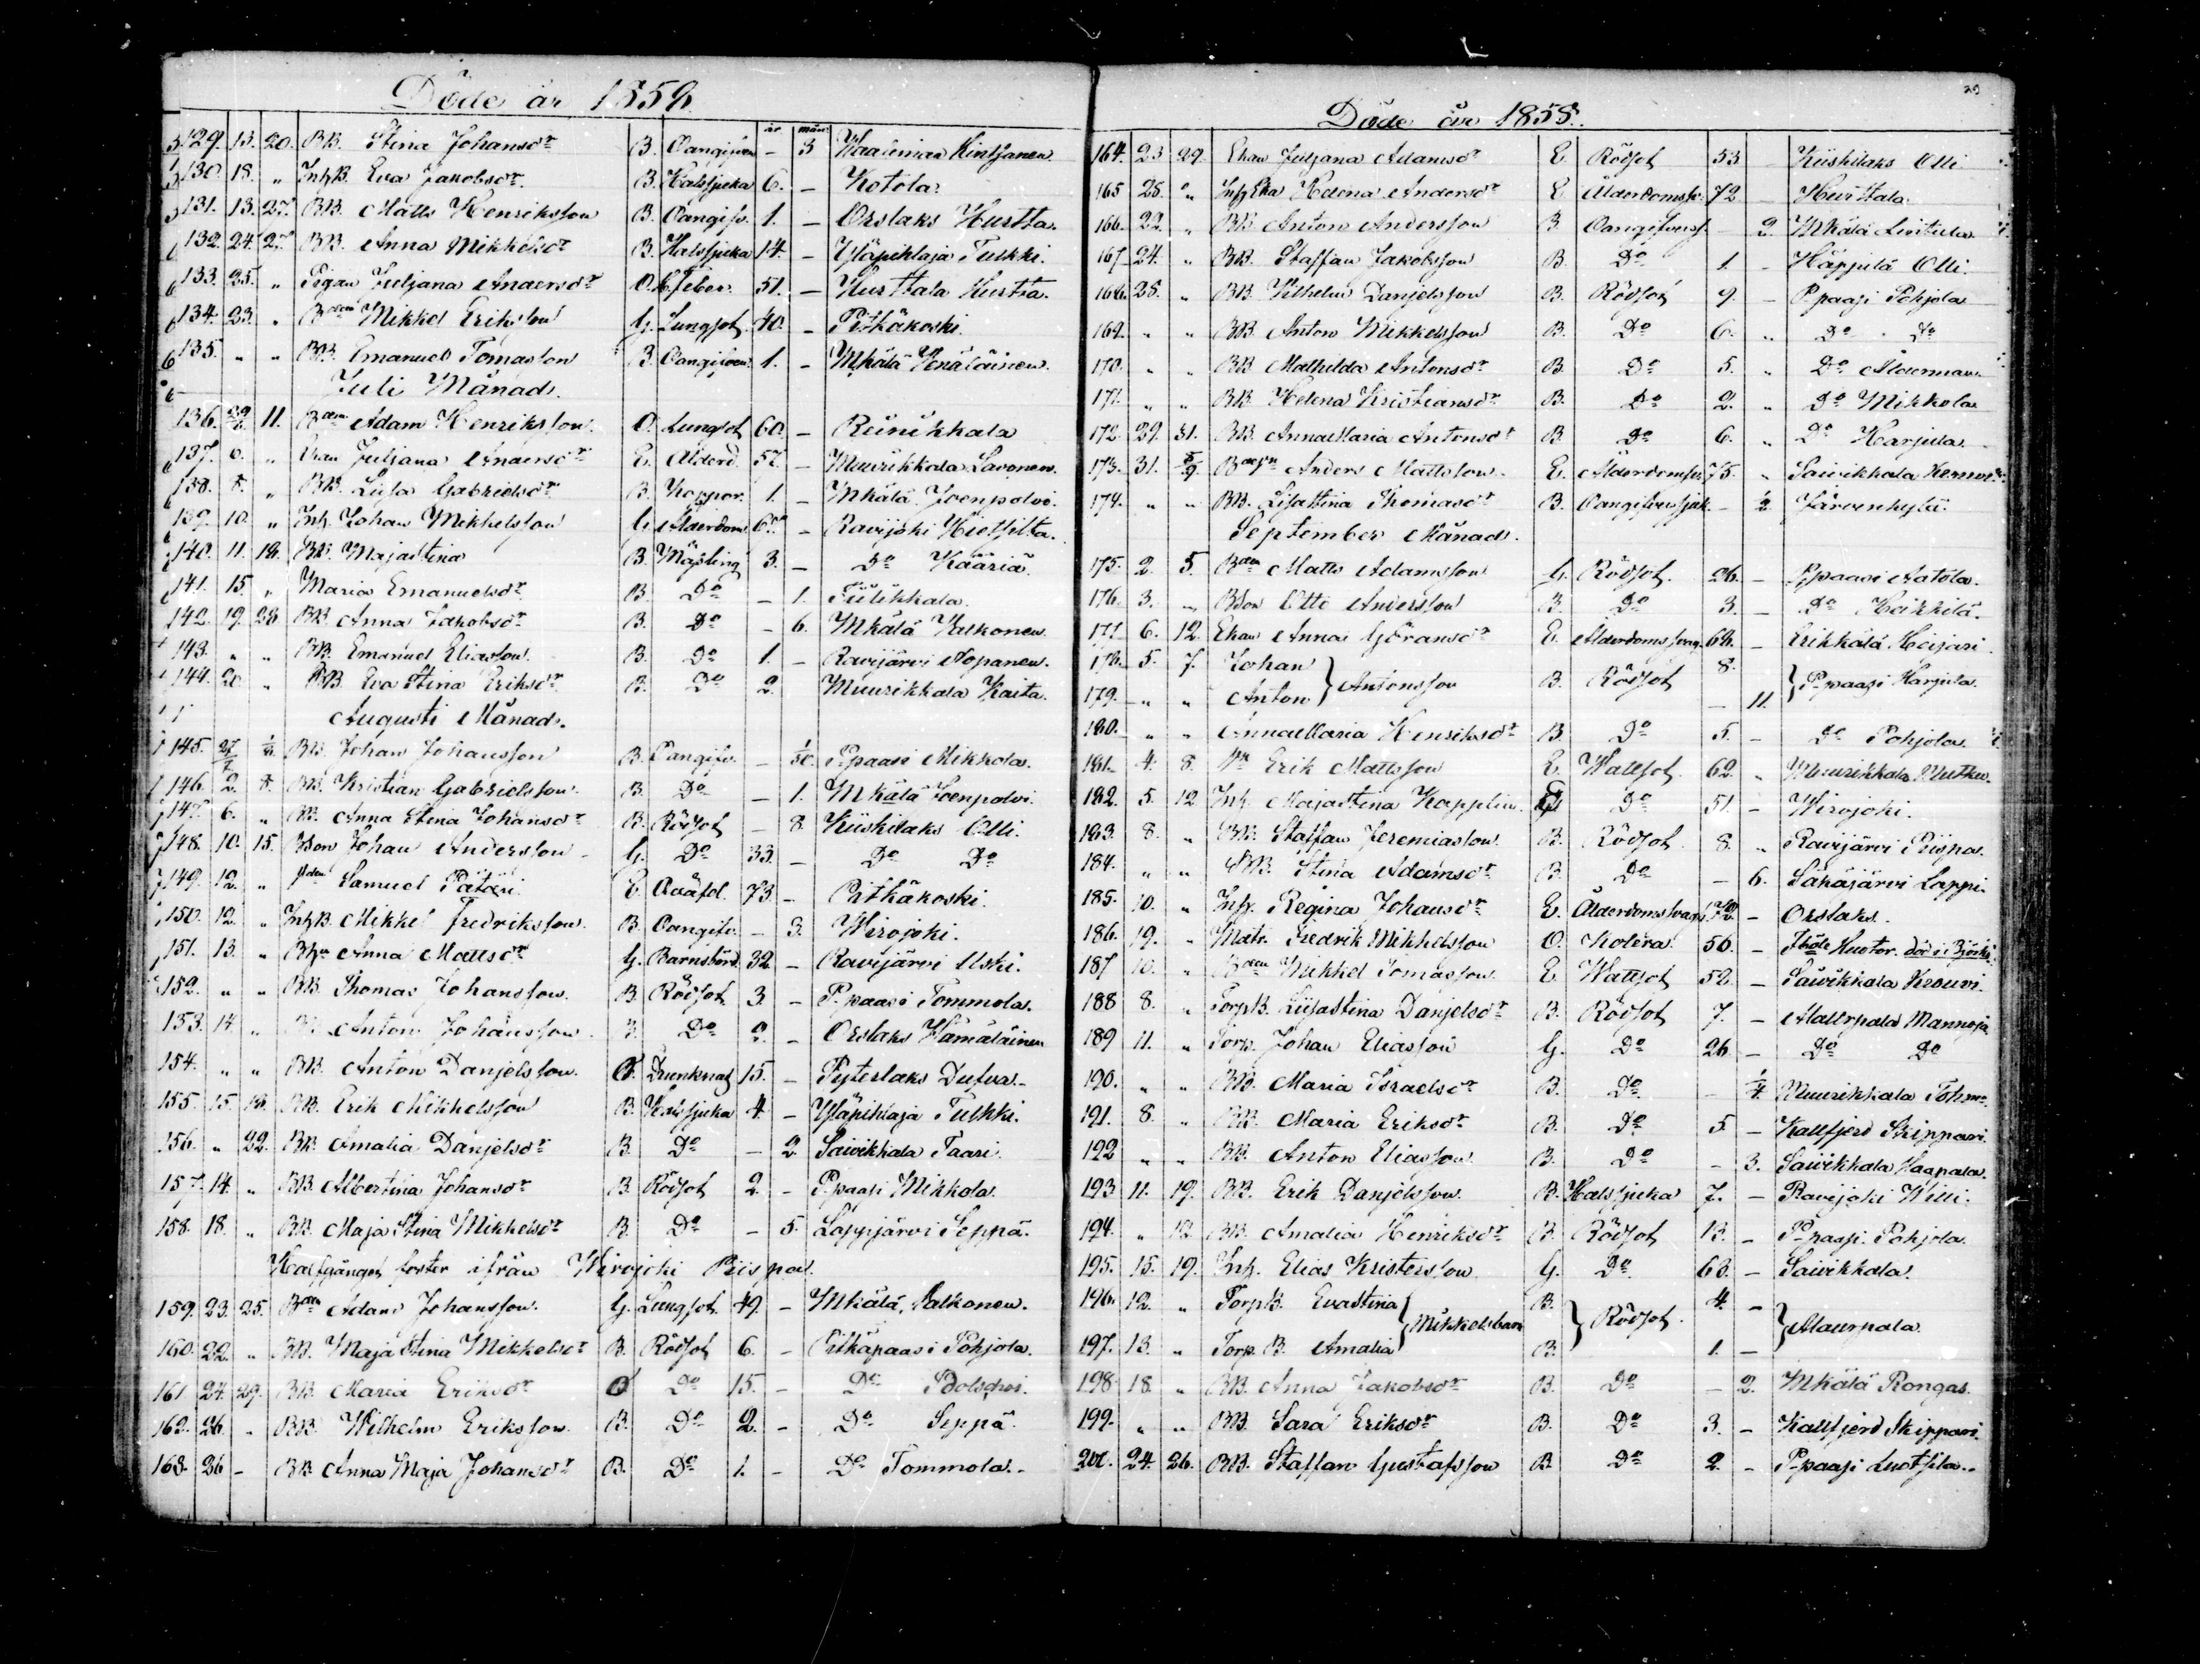 Döde år 1858.
år. mån.
129. 13. 20. BB. Stina Johansdr B. Oangifven – 3 Kintjanen
130. 18. " InhB. Eva Jakobsdr. B. Halssjuka 6. – Kotola.
131. 13. 27. BB. Matts Henriksson B. Oangifv. 1. – Orslaks Hurtta.
132. 24. 27. BB. Anna Mikkelsdr B. Halssjuka 14. – Yläpihlaja Tulkki.
133. 25. " Pigan Juljana Andersdr O. 51. – Hurttala Hurtta.
134. 23. " Bden Mikkel Eriksson G. Lungsot. 40. – Pitkäkoski.
135. " " BB. Emanuel Tomasson B. Oangifven 1. – Mkälä Venäläinen.
Juli Månad.
136. 29. 11. Bden Adam Henriksson. O. Lungsot 60. – Reinikkala
137. 6. " Juljana Andersdr E. Ålderd. 57. – Muurikkala Savonen.
138. 8. " BB. Liisa Gabrielsdr B. Koppor. 1. – Mkälä Joenpolvi.
139. 10. " Inh. Johan Mikkelsson G. Ålderdom – Ravijoki
140. 11. 18. BB. Majastina B. Mässling 3. – Do Kääriä.
141. 15. " Maria Emanuelsdr B. Do – 1. Tiilikkala.
142. 19. 28 BB. Anna Jakobsdr B. Do – 6. Mkälä Valkonen.
143. " " BB. Emanuel Eliasson. B. Do 1. – Ravijärvi Nopanen.
144. 20. " BB. Eva Stina Eriksdr B. Do 2. Muurikkala Kaita.
Augusti Månad.
145. 27/7 1/8 BB. Johan Johansson B. Oangifv. – 1/30. P.paasi Mikkola.
146. 2. 8. BB. Kristian Gabrielsson. B. Do – 1. Mkälä Joenpolvi.
147. 6. " BB. Anna Stina Johansdr B. Rödsot – 8 Kiiskilaks Olli.
148. 10. 15. Bson Johan Andersson G. Do 33. – Do Do
149. 12. " Samuel Pätäri. E. 73. – Pitkäkoski.
150. 12. " InhB. Mikkel Fredriksson. B. Oangifv. – 3. Wirojoki.
151. 13. " Anna Mattsdr G. Barnsbörd 32 – Ravijärvi Uski.
152. " " BB. Thomas Johansson. B. Rödsot 3. – P.paasi Tommola.
153. 14 " Anton Johansson B. Do 2. – Orslaks Hämäläinen
154. " " BB. Anton Danjelsson. O. Drunknat 15. – Pyterlaks Dufva.
155. 15. 18. BB. Erik Mikkelsson B. Halssjuka 4. – Yläpihlaja Tulkki.
156. " 22. BB. Amalia Danjelsdr B. Do – 2. Saivikkala Taari.
157. 14. " BB. Albertina Johansdr B. Rödsot 2. – P.paasi Mikkola.
158. 18. " BB. Maja Stina Mikkelsdr B. Do – 5. Lappjärvi Seppä.
Halfgånget foster ifrån Wirojoki Piispa.
159. 23. 25. Bden Adam Johansson. G. Lungsot 49. – Mkälä, Valkonen.
160. 22. " BB. Maja Stina Mikkelsdr B. Rödsot 6. – Pitkäpaasi Pohjola.
161 24. 29. BB. Maria Eriksdr O Do 15. – Do
162. 26. " BB. Wilhelm Eriksson B. Do 2. – Do Seppä.
163. 26 – BB. Anna Maja Johansdr B. Do 1. – Do Tommola.
Döde år 1858.
164. 23 29. Ehan Juljana Adamsdr E. Rödsot 53 – Kiiskilaks Olli.
165 25. " Helena Andersdr E Ålderdomssv. 72 – Hurttala.
166. 22. " BB. Anton Andersson B Oangifven – 2. Mkälä Lintula.
167. 24. " BB. Staffan Jakobsson B. Do 1. – Häppilä Olli.
168. 28. " BB. Wilhelm Danjelsson B. Rödsot 9. – P.paasi Pohjola
169. " " BB. Anton Mikkelsson B. Do 6. " Do Do
170. " " BB Mathilda Antonsdr B. Do 5. " Do Ålderman.
171. " " BB. Helena Kristiansdr B. Do 2. " Do Mikkola
172. 29. 31. BB. AnnaMaria Antonsdr B. Do 6. " Do Harjula.
173. 31. 5/9. Anders Mattsson. E. Ålderdomssv. 75. " Saivikkala
174. " " BB. Lisastina Thomasdr B. Oangifven sjuk. – 1/2 Järvenkylä.
September Månad.
175. 2. 5. Bden Matts Adamsson G. Rödsot. 26. – P.paasi Aatola.
176. 3. " Bson Otto Andersson B. Do 3. – Do Heikkilä.
177. 6. 12. Ehan Anna Göransdr E. Ålderdomssvag. 68. – Eerikkälä Heijari.
178. 5. 7. Johan } Antonsson B. Rödsot 8. } P.paasi Harjula.
179. " " Anton – 11.
180. " " AnnaMaria Henriksdr B Do 5. – Do Pohjola.
181. 4. 8. Erik Mattsson E. Wattsot. 62. " Muurikkala Mutka.
182. 5. 12 Inh. Majastina Kopplin. Do 51. – Wirojoki.
183. 8. " BB. Staffan Jeremiasson. B. Rödsot 8. " Ravijärvi Piispa.
184. " " BB. Stina Adamsdr B. Do – 6. Säkäjärvi Lappi.
185. 10. " Inh. Regina Johansdr E. Ålderdomssvag. – Orslaks.
186. 19. " Matr. Fredrik Mikkelsson O. Kolera. 56. – död i Björkö.
187 10. " Bden Mikkel Tomasson. E. Wattsot 52. – Saivikkala Krouvi.
188 8. " TorpB. Liisastina Danjelsdr B. Rödsot 7. – Alaurpala Mannoja
189 11. " Torp. Johan Eliasson G. Do 26 – Do Do
190. " " BB. Maria Israelsdr B. Do – 1/4. Muurikkala
191. 8. " BB. Maria Eriksdr B. Do 5 – Kallfjerd Skippari.
192 " " BB. Anton Eliasson. B. Do – 3. Saivikkala Haapala.
193 11. 19. BB. Erik Danjelsson. B. Halssjuka 7. – Ravijoki Willi.
194. " 12 BB. Amalia Henriksdr B. Rödsot 13. – P.paasi Pohjola.
195. 15. 19. Inh. Elias Kristersson G. Do 63. – Saivikkala.
196. 12. " TorpB. Evastina } Mikkelsbarn B. } Rödsot. 4. – } Alaurpala.
197. 13. " Torp. B. Amalia B. 1. –
198. 18. " BB. Anna Jakobsdr B. Do – 2. Mkälä Rongas.
199. " " BB. Sara Eriksdr B. Do 3. – Kallfjerd Skippari.
200. 24. 26. BB. Staffan Gustafsson B. Do 2. – P.paasi Luotsila.